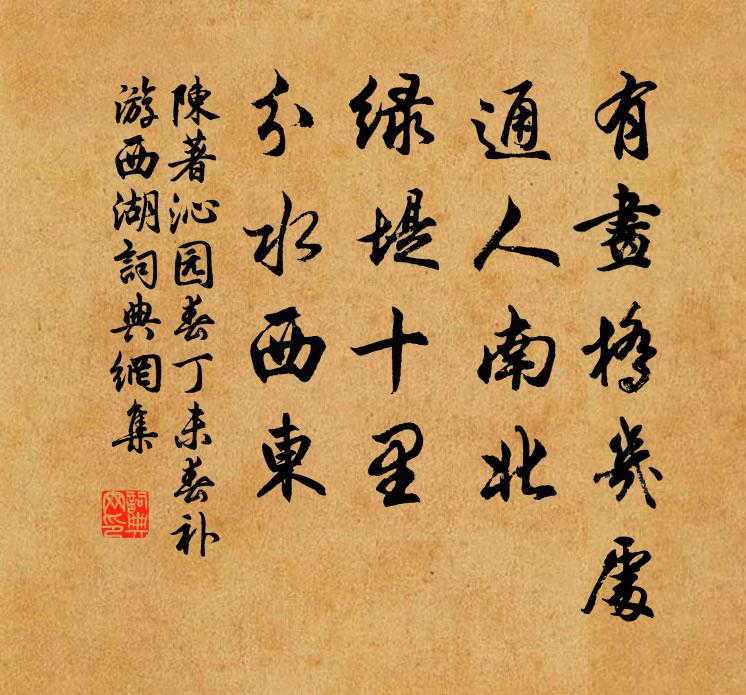 有畫橋幾處
通人南北
綠堤十里
分水西東
陳著沁园春丁未春补
游西湖詞典網集
詞典网印